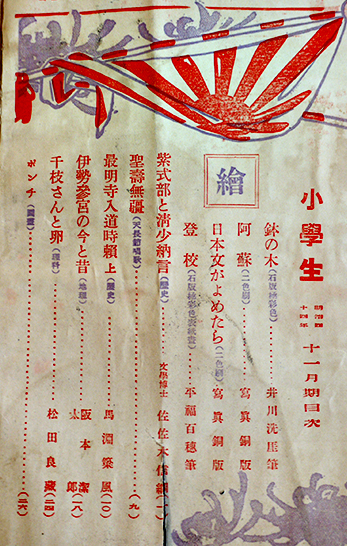 小學生 明治四十四年 十一月期目次
繪
鉢の木(石版極彩色)………井川洗厓筆
阿蘇(二色刷)………寫眞銅版
日本文がよめたら(二色刷)…寫眞銅版
登校(石版極彩色表紙畫)…平福百穗筆
紫式部と淸少納言(歷史)…文學博士 佐佐木信綱(一)
聖壽無疆(天長節唱歌)………(九)
最明寺入道時賴 上(歷史)…馬淵榮風(一〇)
伊勢參宮の今と昔(地理)…阪本潔(一八)
千枝さんと卵(理科)………太郞 松田良藏(二四)
ポンチ(圖畫)………(二六)